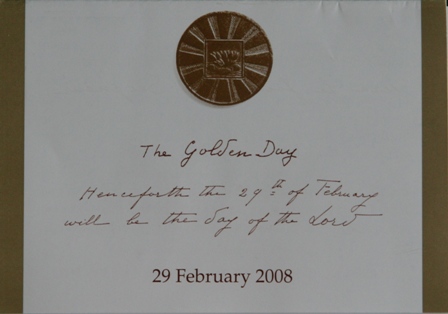 The Golden Day
Henceforth the 29th of February
will be the day of the Lord
29 February 2008